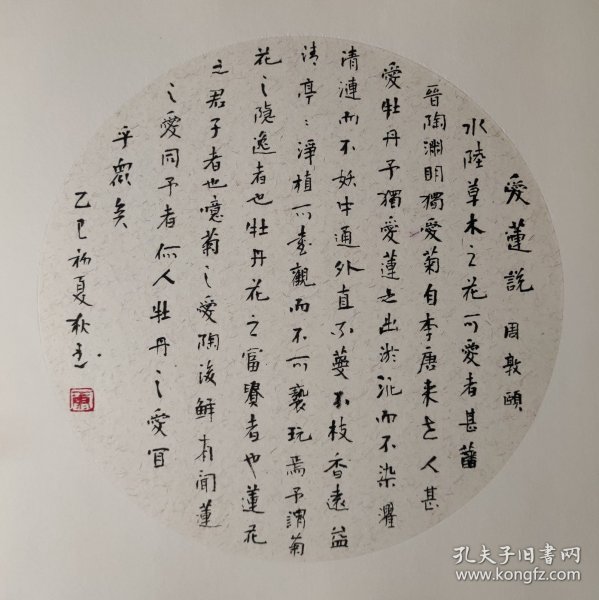 愛蓮説 周敦頤
水陸草木之花可愛者甚蕃
晉陶淵明獨愛菊自李唐来世人甚
愛牡丹予獨愛蓮之出淤泥而不染濯
清漣而不妖中通外直不蔓不枝香遠益
清亭〻淨植可遠觀而不可褻玩焉予謂菊
花之隐逸者也牡丹花之富貴者也蓮花
之君子者也噫菊之愛陶後鮮有聞蓮
之愛同予者何人牡丹之愛宜
乎衆矣
乙巳初夏
孔夫子旧书网
www.kongfz.com